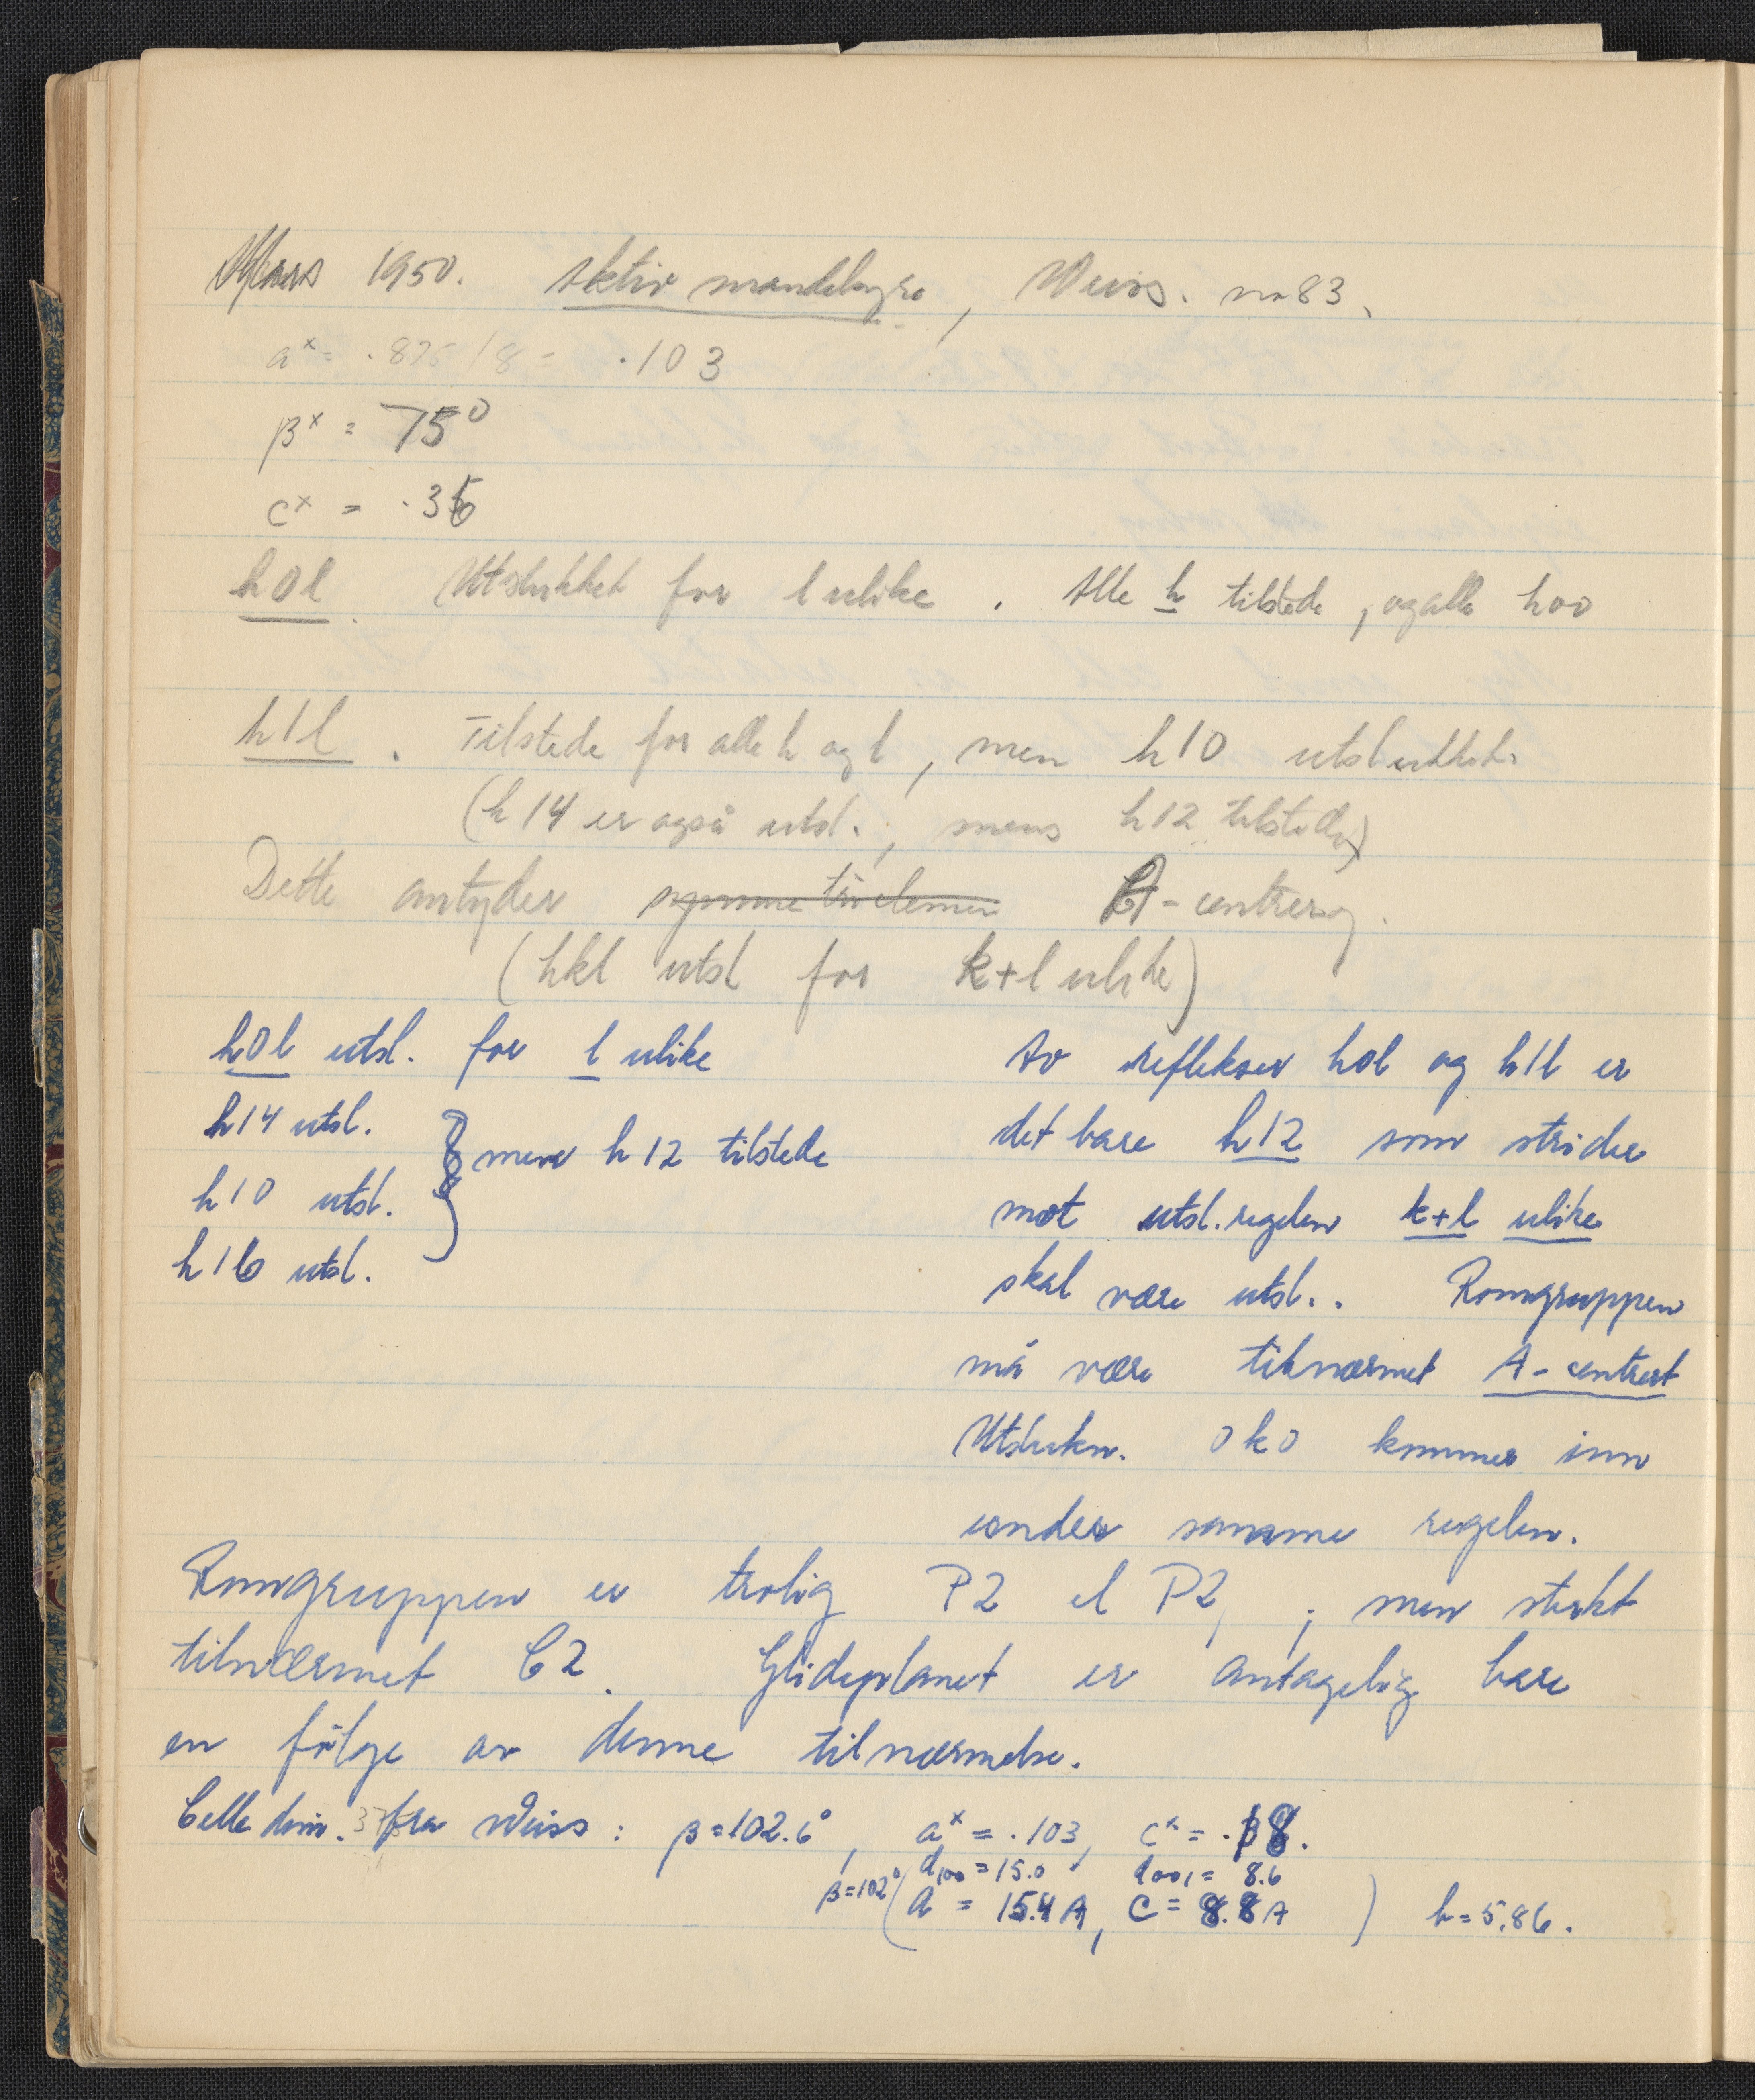 Mars 1950. Aktiv mandelsyre, Weiss. nr 83.
aˣ = .825/8 = .103
βˣ = 75⁰
cˣ = .36
h0l. Utslukket for l ulike. Alle h tilstede, og alle h00
h1l. Tilstede for alle h og l, men h10 utslukket.
(h14 er også utsl., mens h12 tilstede)
Dette antyder symmetrielemen A-centrering.
(hkl utsl for k+l ulike)
h0l utsl. for l ulike
h14 utsl.
h10 utsl. } mens h12 tilstede
h16 utsl.
Av reflekser h0l og h1l er
det bare h12 som strider
mot utsl.regelen k+l ulike
skal være utsl.. Romgruppen
må være tilnærmet A-centrert
Utslukn. 0k0 kommer inn
under samme regelen.
Romgruppen er trolig P2 el P2₁; men sterkt
tilnærmet C2. Glideplanet er antagelig bare
en følge av denne tilnærmelse.
Celle dim. fra Weiss: β=102.6°, aˣ = .103, cˣ = .18.
d₁₀₀ = 15.0 d₀₀₁ = 8.6
β=102° (a = 15.4 A, c = 8.8 A) b = 5.86.